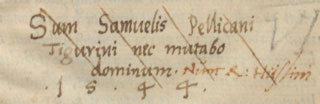 Sum Samuelis Pellicani
Tigurini nec mutabo
dominum. Nunc
. 1 5 . 4 4 .